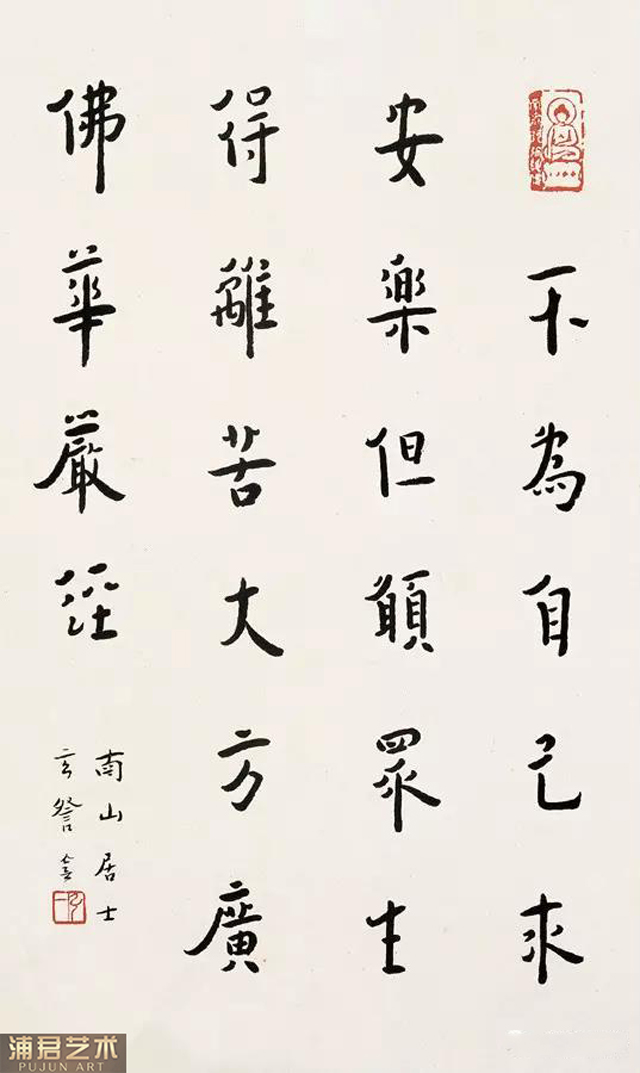 不為自己求
安樂但願眾生
得離苦大方廣
佛華嚴經
南山居士
玄
浦君艺术
PUJUN ART